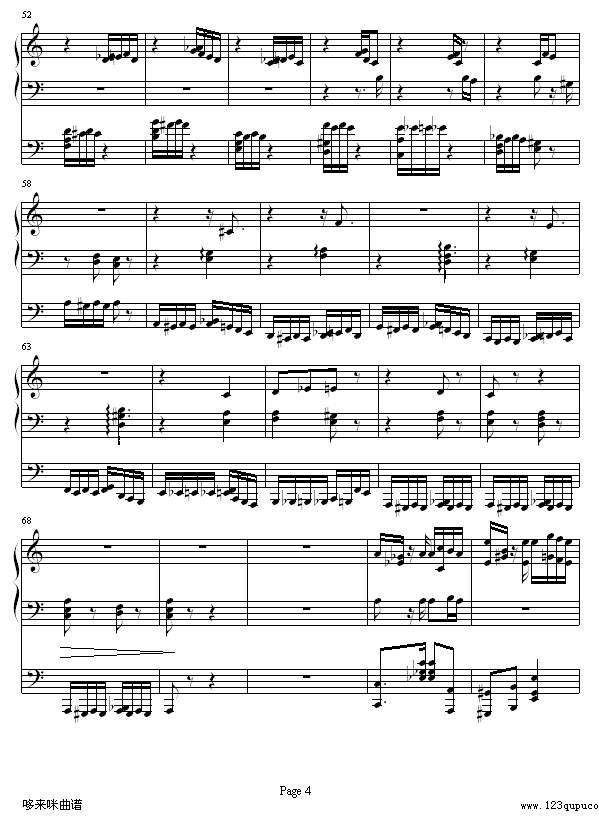 52
58
63
68
Page 4
哆来咪曲谱
www.123qupuco